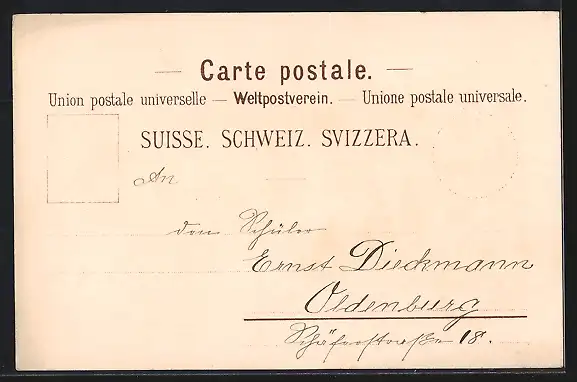 — Carte postale. —
Union postale universelle — Weltpostverein. — Unione postale universale.
SUISSE. SCHWEIZ. SVIZZERA.
An
den Schüler
Ernst Dieckmann
Oldenburg
Schäferstraße 18.